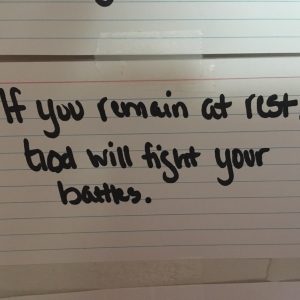 If you remain at rest,
God will fight your
battles.